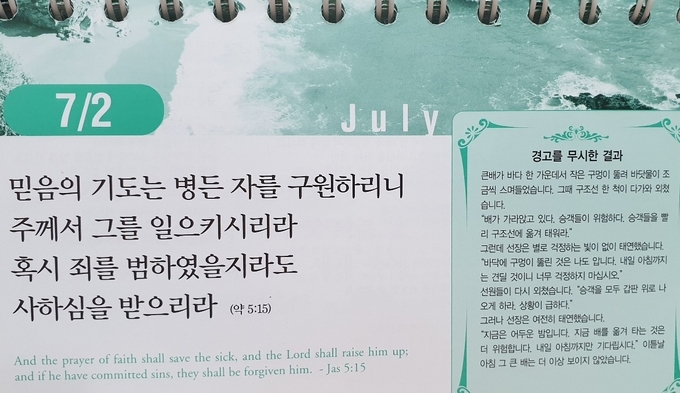 7/2
July
믿음의 기도는 병든 자를 구원하리니
주께서 그를 일으키시리라
혹시 죄를 범하였을지라도
사하심을 받으리라 (약 5:15)
And the prayer of faith shall save the sick, and the Lord shall raise him up;
and if he have committed sins, they shall be forgiven him. - Jas 5:15
경고를 무시한 결과
큰배가 바다 한 가운데서 작은 구멍이 뚫려 바닷물이 조
금씩 스며들었습니다. 그때 구조선 한 척이 다가와 외쳤
습니다.
"배가 가라앉고 있다. 승객들이 위험하다. 승객들을 빨
리 구조선에 옮겨 태워라."
그런데 선장은 별로 걱정하는 빛이 없이 태연했습니다.
"바닥에 구멍이 뚫린 것은 나도 압니다. 내일 아침까지
는 견딜 것이니 너무 걱정하지 마십시오."
선원들이 다시 외쳤습니다. "승객을 모두 갑판 위로 나
오게 하라. 상황이 급하다."
그러나 선장은 여전히 태연했습니다.
"지금은 어두운 밤입니다. 지금 배를 옮겨 타는 것은
더 위험합니다. 내일 아침까지만 기다립시다." 이튿날
아침 그 큰 배는 더 이상 보이지 않았습니다.